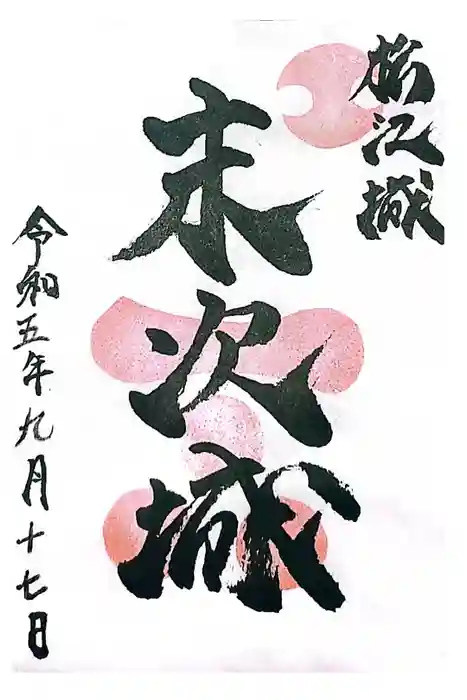 松江城
末次城
令和五年九月十七日